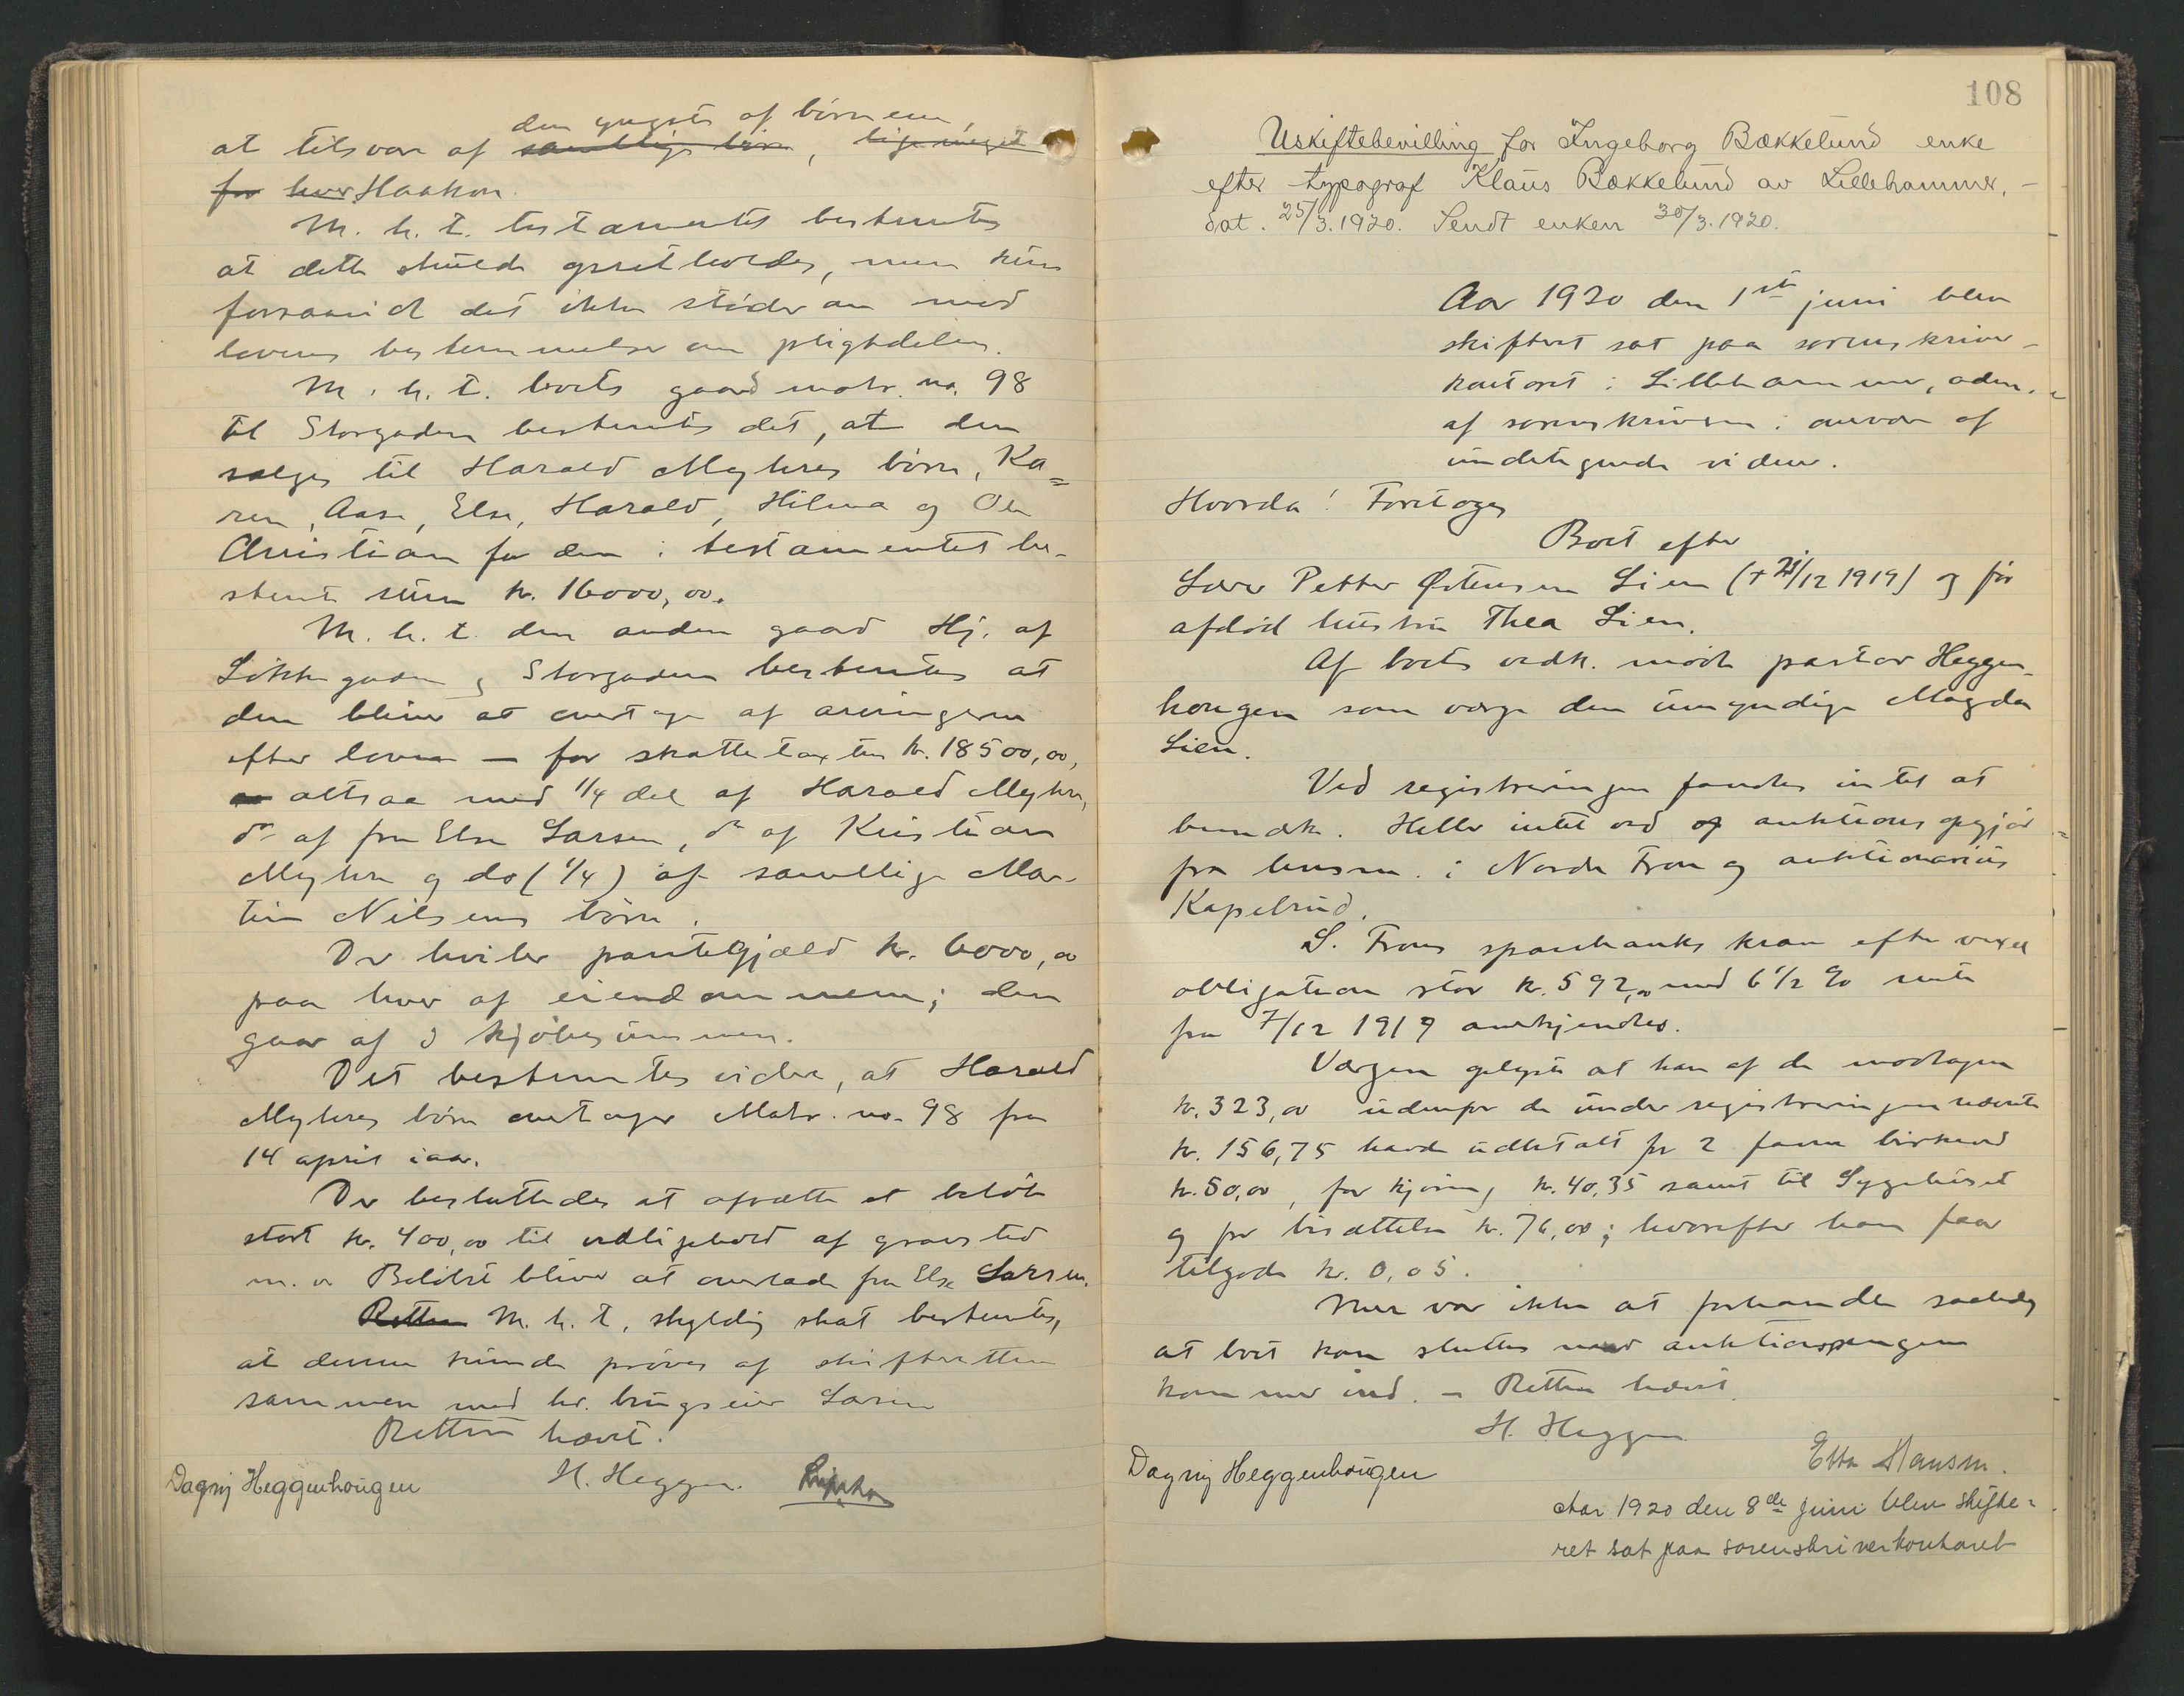 den yngste af børnene,
at tilsvare af samtlige børn, lige meget
for hver Haakon.
M. h. t. testamentet bestemtes
at dette skulde opretholdes, men kun
forsaavidt det ikke støder an mod
lovens bestemmelser om pligtdelen.
M. h. t. boets gaard matr. no. 98
til Storgaden bestemtes det, at den
sælges til Harald Myhres børn, Ka=
ren, Aase, Else, Harald, Hilma og Ole
Christian for den i testamentet be-
stemte sum kr. 16000,00.
M. h. t. den anden gaard Hj. af
Løkkegaden & Storgaden bestemtes at
den bliver at overtage af arvingerne
efter loven — for skattetaxten kr. 18500,00,
altsaa med 1/4 del af Harald Myhre,
do af fru Else Larsen, do af Kristian
Myhre og do (1/4) af samtlige Mar-
tin Nilsens børn.
Der hviler pantegjæld kr. 6000,00
paa hver af eiendommene; den
gaar af i kjøbesummen.
Det bestemtes videre, at Harald
Myhres børn overtager Matr. no. 98 fra
14 april iaar.
Der besluttedes at afsætte et beløb
stort kr. 400,00 til vedligehold af gravsted
m. v. Beløbet bliver at overlade fru Else Larsen.
Retten M. h. t. skyldig skat bestemtes,
at denne kunde prøves af skifteretten
sammen med hr. brugseier Larsen
Retten hævet.
Dagny Heggenhougen H. Heggen.
108
Uskiftebevilling for Ingeborg Bækkelund enke
efter typograf Klaus Bækkelund av Lillehammer, -
dat. 25/3. 1920. Sendt enken 30/3. 1920.
Aar 1920 den 1ste juni blev
skifteret sat paa sorenskriver-
kontoret i Lillehammer, adm.
af sorenskriveren i overvær af
undertegnede vidner.
Hvorda! Foretoges
Boet efter
Lærer Petter Østensen Lien (+ 21/12 1919) og før
afdød hustru Thea Lien.
Af boets vedk. mødte pastor Heggen-
hougen som værge den umyndige Magda
Lien.
Ved registreringen fandtes intet at
bemærke. Heller intet ved af auktionsopgjør=
fra lensm. i Nordre Fron og auktionarius
Kapelrud.
S. Frons sparebanks krav efter vexel
obligation stor kr. 592,00 med 6 1/2 % rente
fra 7/12 1919 anerkjendtes.
Værgen oplyste at han af de modtagne
kr. 323,00 udenfor de under registreringen nævnte
kr. 156,75 havde udbetalt for 2 favne birkeved
kr. 50,00, for kjøring kr. 40,35 samt til Sygehuset
og for bisættelse kr. 76,00; hvorefter han faar
tilgode kr. 0,05.
Mere var ikke at forhandle saaledes
at boet kan sluttes naar auktionspengene
kommer ind. — Retten hævet.
H. Heggen
Dagny Heggenhougen Ebba Hansen.
Aar 1920 den 8de juni blev skifte=
ret sat paa sorenskriverkontoret